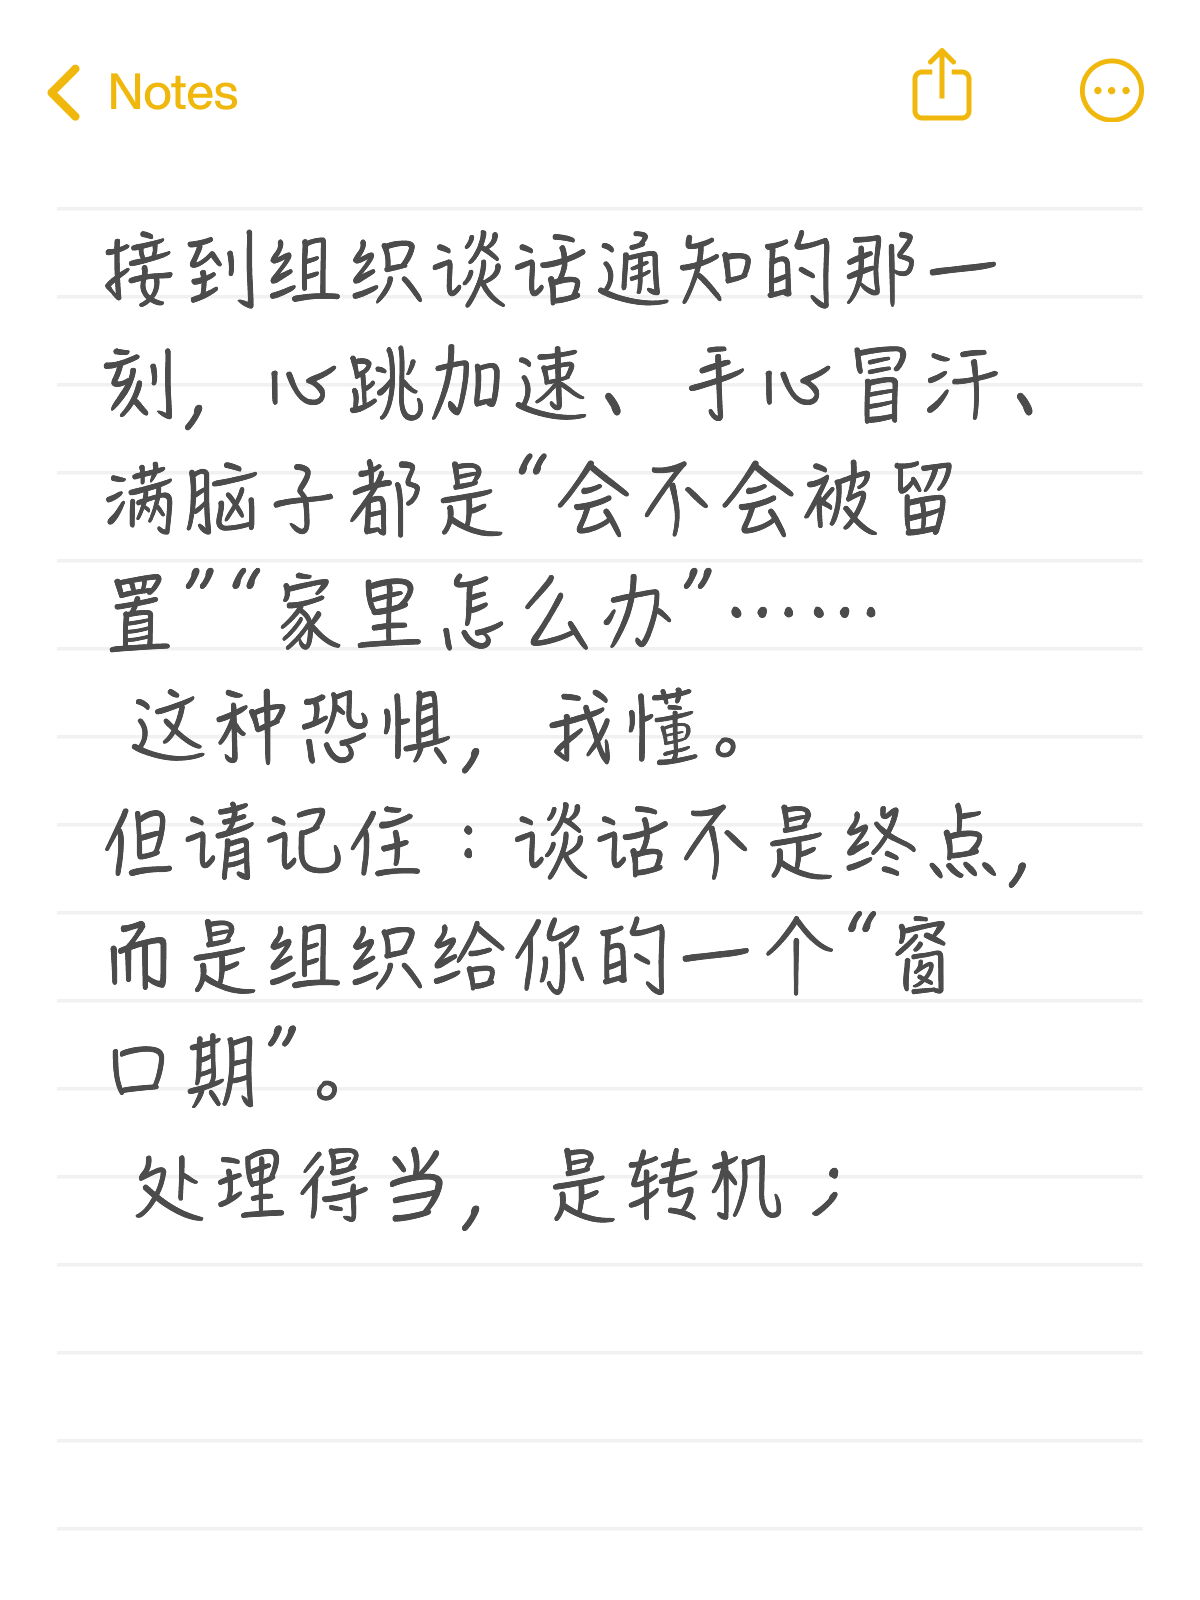 Notes
接到组织谈话通知的那一
刻，心跳加速、手心冒汗、
满脑子都是“会不会被留
置”“家里怎么办”……
这种恐惧，我懂。
但请记住：谈话不是终点，
而是组织给你的一个“窗
口期”。
处理得当，是转机；